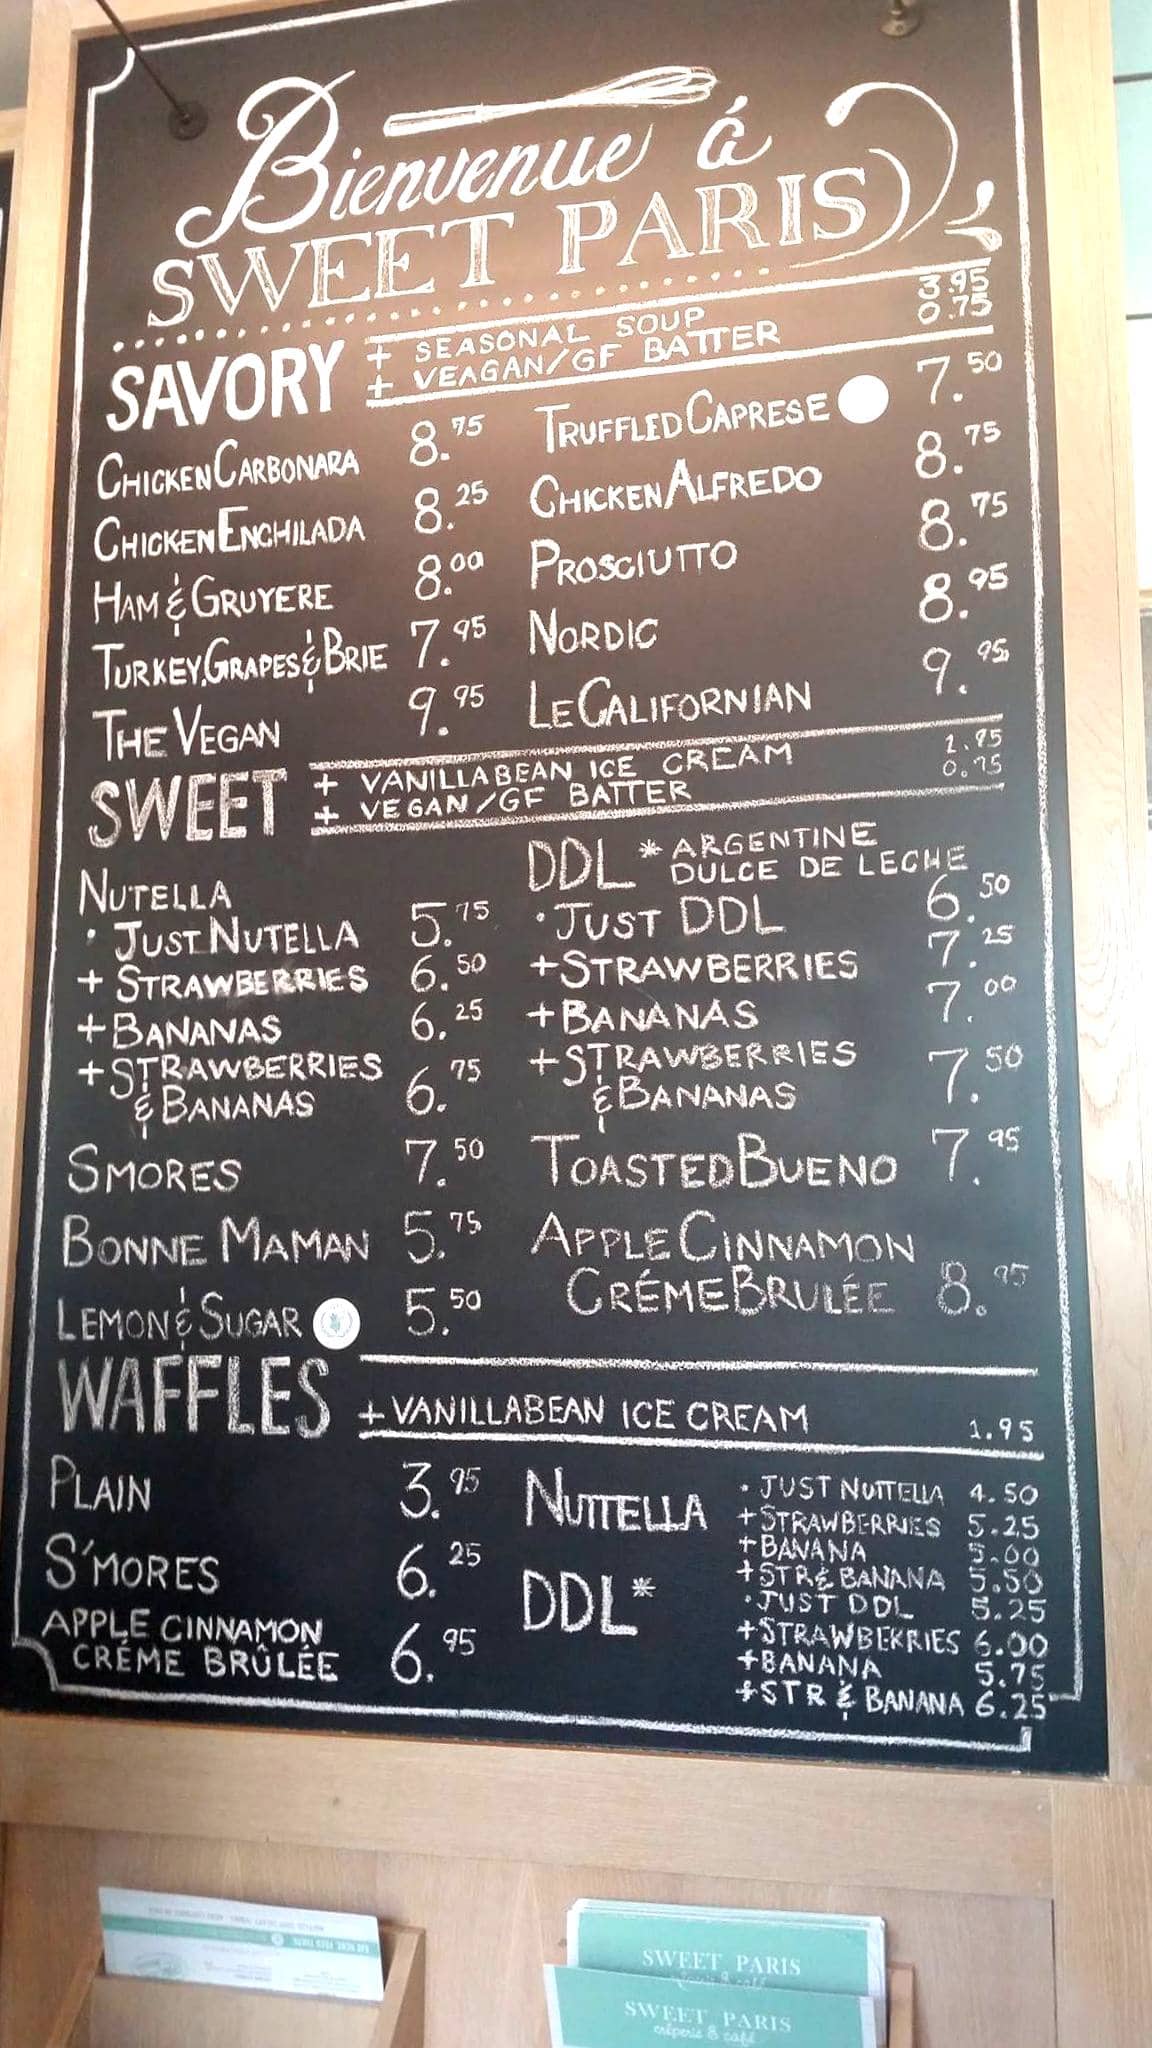 Bienvenue á
SWEET PARIS
SAVORY
+ SEASONAL SOUP 3.95
+ VEAGAN/GF BATTER 0.75
CHICKEN CARBONARA 8.75
CHICKEN ENCHILADA 8.25
HAM & GRUYERE 8.00
TURKEY, GRAPES & BRIE 7.95
THE VEGAN 9.95
TRUFFLED CAPRESE 7.50
CHICKEN ALFREDO 8.75
PROSCIUTTO 8.75
NORDIC 8.95
LE CALIFORNIAN 9.95
SWEET
+ VANILLA BEAN ICE CREAM 1.95
+ VEGAN/GF BATTER 0.75
NUTELLA
· JUST NUTELLA 5.75
+ STRAWBERRIES 6.50
+ BANANAS 6.25
+ STRAWBERRIES
& BANANAS 6.75
SMORES 7.50
BONNE MAMAN 5.75
LEMON & SUGAR 5.50
DDL * ARGENTINE
DULCE DE LECHE
· JUST DDL 6.50
+ STRAWBERRIES 7.25
+ BANANAS 7.00
+ STRAWBERRIES
& BANANAS 7.50
TOASTED BUENO 7.95
APPLE CINNAMON
CRÉME BRULÉE 8.95
WAFFLES
+ VANILLA BEAN ICE CREAM 1.95
PLAIN 3.95
S'MORES 6.25
APPLE CINNAMON
CRÉME BRÛLÉE 6.95
NUTTELLA
· JUST NUTTELLA 4.50
+ STRAWBERRIES 5.25
+ BANANA 5.00
+ STR & BANANA 5.50
DDL*
· JUST DDL 5.25
+ STRAWBERRIES 6.00
+ BANANA 5.75
+ STR & BANANA 6.25
SWEET PARIS
SWEET PARIS
crêperie & café